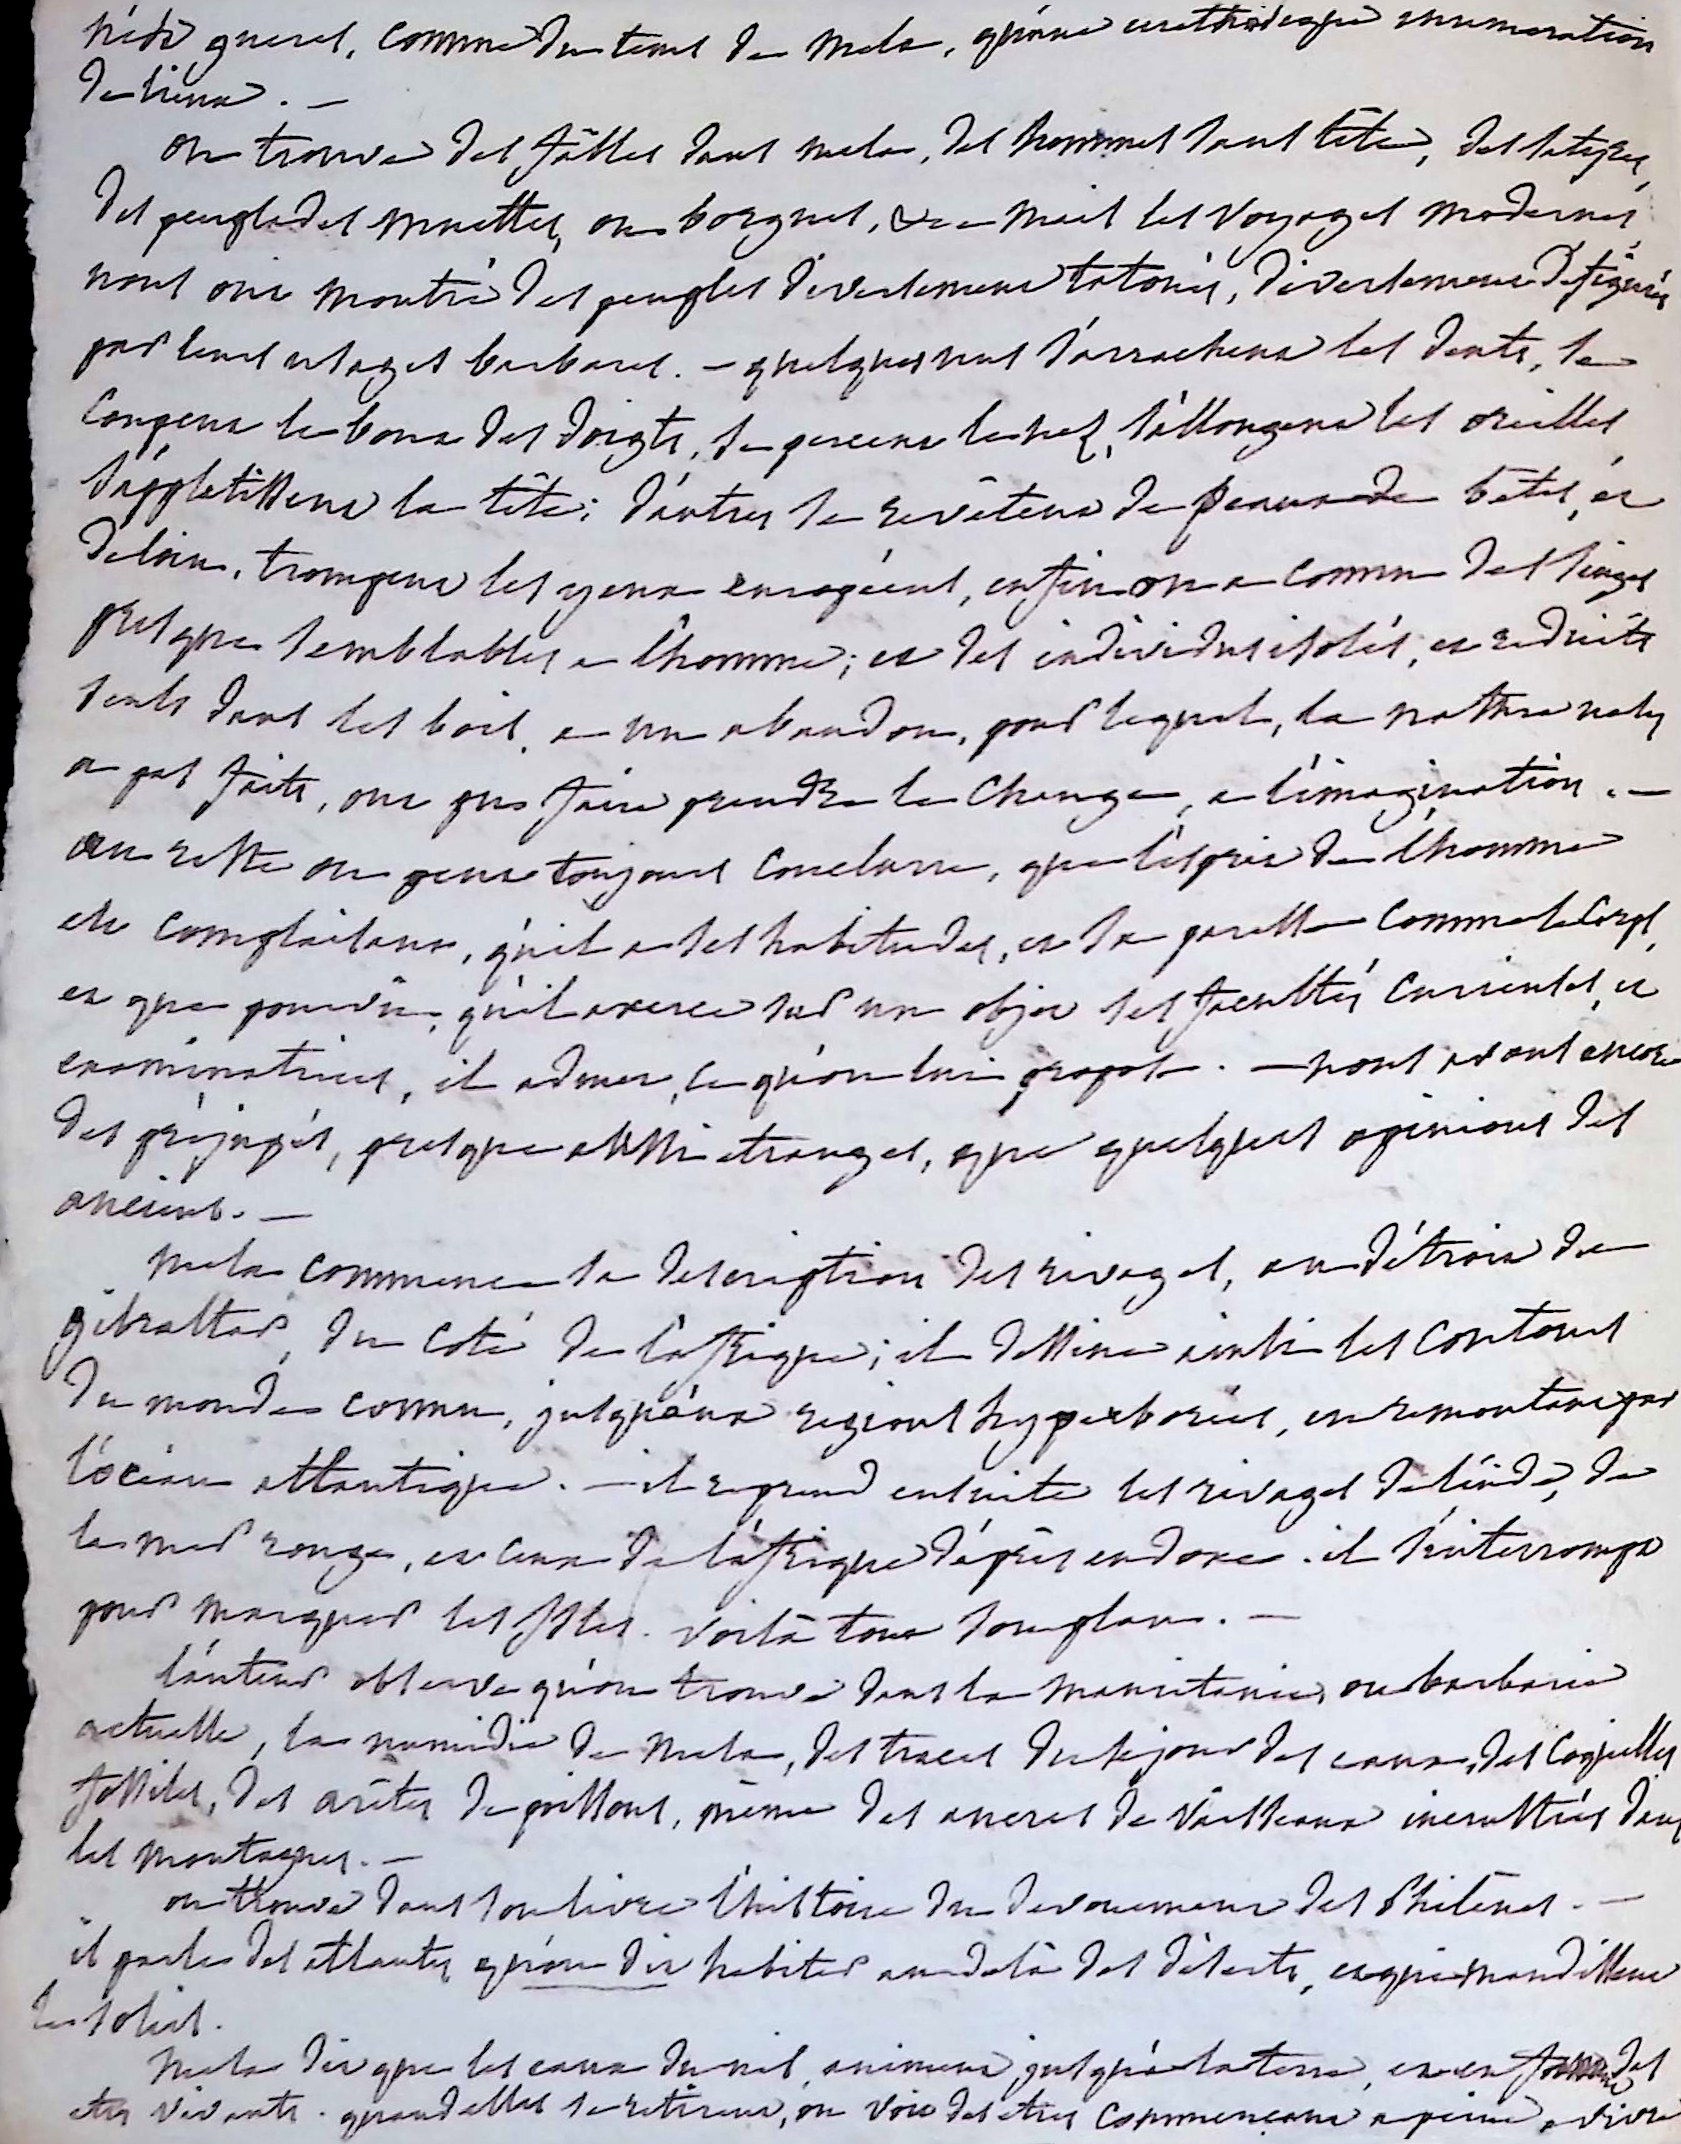 guères, comme du tems de Mela, qu'une enumeration
de lieux. —
on trouve des fables dans Mela, des hommes sans tête, des satyres,
des peuplades muettes, ou borgnes, &c. mais les voyages modernes,
nous ont montré des peuples diversement tatoués, diversement défigurés
par leurs usages barbares. — quelques uns s'arrachent les dents, se
coupent le bout des doigts, se percent le nez, s'allongent les oreilles,
s'applatissent la tête; d'autres se revêtent de peaux de bêtes, et
de loin, trompent les yeux européens, enfin on a connu des singes
presque semblables a l'homme; et des individus isolés, et reduits
seuls dans les bois, a un abandon, pour lequel, la nature ne les
a pas faits, ont pu faire prendre le change, a l'imagination. —
au reste on peut toujours conclurre, que l'esprit de l'homme
est complaisant, qu'il a ses habitudes, et sa paresse comme le corps,
et que pourvû, qu'il exerce sur un objet ses facultés curieuses, et
examinatrices, il admet, ce qu'on lui propose. — nous avons encore
des préjugés, presque aussi etranges, que quelques opinions des
anciens. —
Mela commence sa description des rivages, au détroit de
gibraltar, du coté de l'afrique; il dessine ainsi les contours
du monde connu, jusqu'aux regions hyperborées, en remontant par
l'océan atlantique. — il reprend ensuite les rivages de l'inde, de
la mer rouge, et ceux de l'afrique d'après eudoxe. il s'interrompt
pour marquer les isles. voilà tout son plan. —
l'auteur observe qu'on trouve dans la mauritanie, ou barbarie
actuelle, la numidie de Mela, des traces du sejour des eaux, des coquilles
fossiles, des arêtes de poissons, même des ancres de vaisseaux incrustées dans
les montagnes. —
on trouve dans son livre l'histoire du devouement des Philènes. —
il parle des atlantes qu'on dit habiter au delà des déserts, et qui maudissent
le soleil.
Mela dit que les eaux du nil, animent jusqu'a la terre, et en des
etres vivants. quand elles se retirent, on voit des etres commençant a peine a vivre